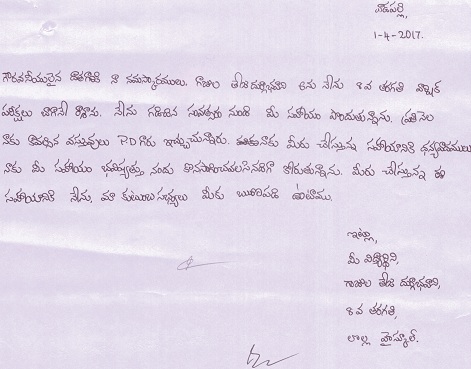 వాడపల్లి,
1-4-2017.
గౌరవనీయులైన దాతగారికి నా నమస్కారములు. గాజుల తేజ దుర్గాభవాని అను నేను 8వ తరగతి వార్షిక
పరీక్షలు బాగానే రాశాను. నేను గడిచిన సంవత్సరం నుండి మీ సహాయం పొందుతున్నాను. ప్రతినెల
నాకు కావలసిన వస్తువులు P.D గారు ఇచ్చుచున్నారు. నాకు మీరు చేస్తున్న సహాయానికి ధన్యవాదములు
నాకు మీ సహాయం భవిష్యత్తు నందు కొనసాగించవలసినదిగా కోరుతున్నాను. మీరు చేస్తున్న ఈ
సహాయానికి నేను, మా కుటుంబసభ్యులు మీకు ఋణపడి ఉంటాము.
ఇట్లు,
మీ విద్యార్థిని,
గాజుల తేజ దుర్గాభవాని,
8వ తరగతి,
లొల్ల హైస్కూల్.